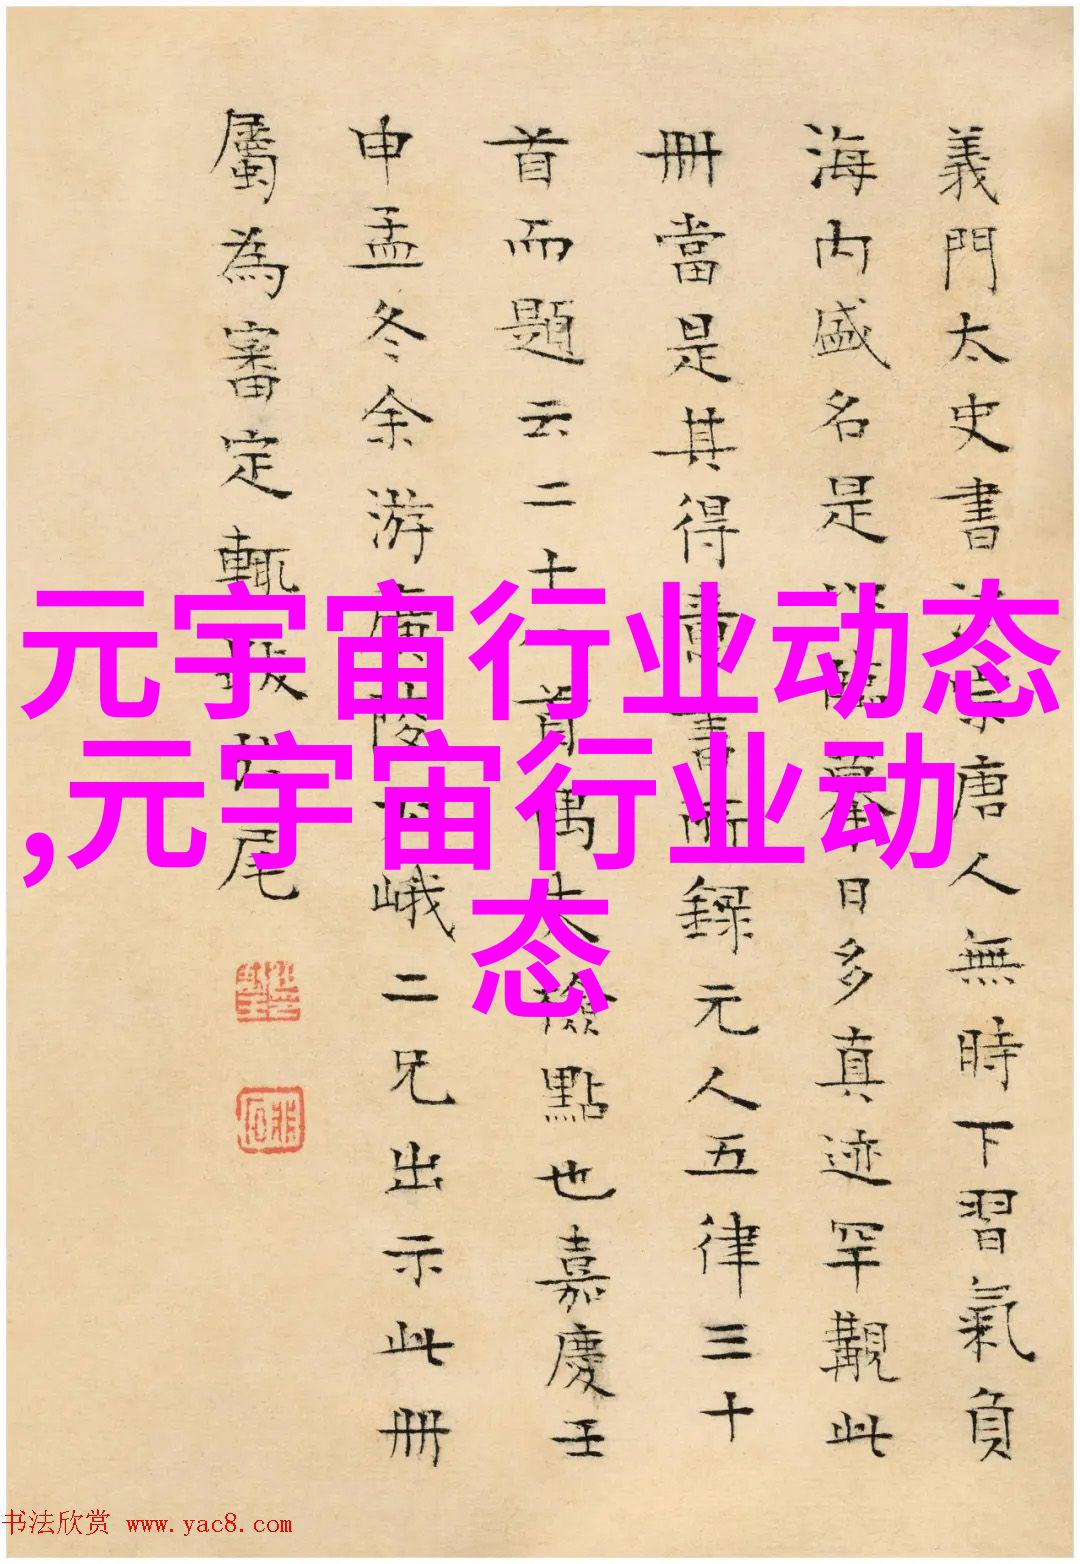 元宇宙行业动态
,元宇宙行业动
态
義門太史書法宗唐人無時下習氣負
海内盛名是臨摹日多真迹罕覯此
冊當是其得意書所錄元人五律三十
首而題云二十首偶失檢點也嘉慶壬
申孟冬余游廣陵峨二兄出示此冊
屬為審定輒跋於尾
书法欣赏 www.yac8.com